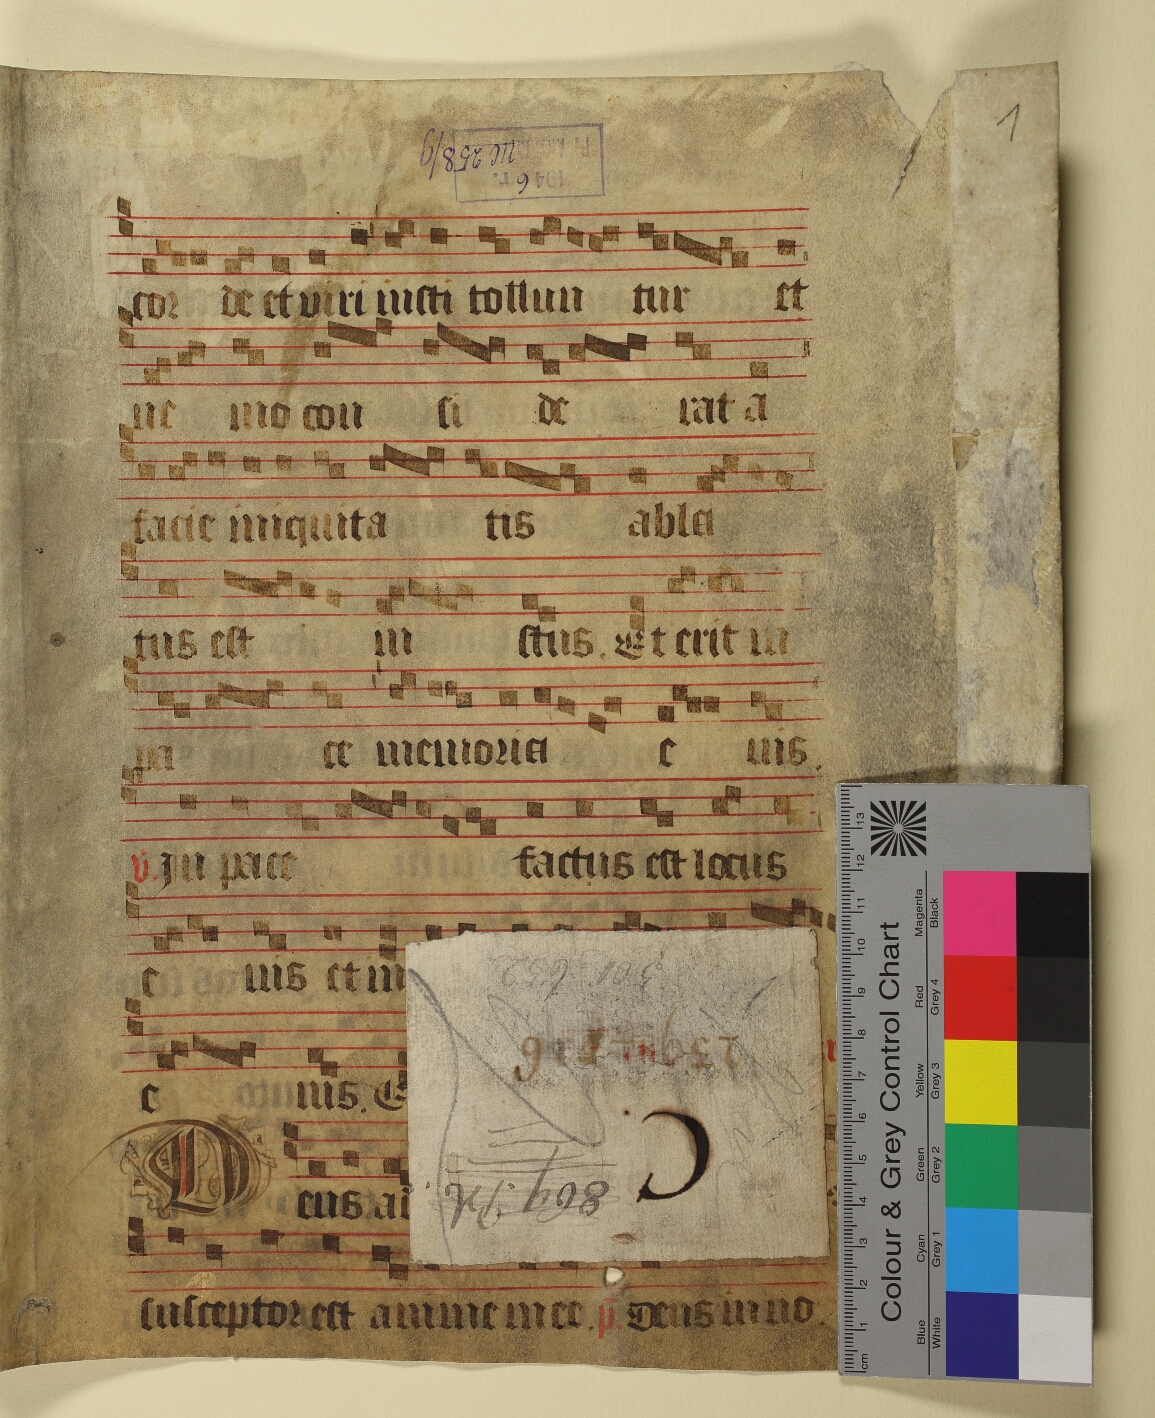 1
1946 r.
IIC 258/9
cor de et viri iusti tollun tur et
ne mo con si de rat a
facie iniquita tis abla
tus est iu stus. Et erit in
pa ce memoria e ius.
v. In pace factus est locus
e ius et in
e ius. E
Deus ad
susceptor est anime mee. p. Deus in no.
C
869
Colour & Grey Control Chart
Magenta
Black
Red
Grey 4
Yellow
Grey 3
Green
Grey 2
Cyan
Grey 1
Blue
White
cm 1 2 3 4 5 6 7 8 9 10 11 12 13